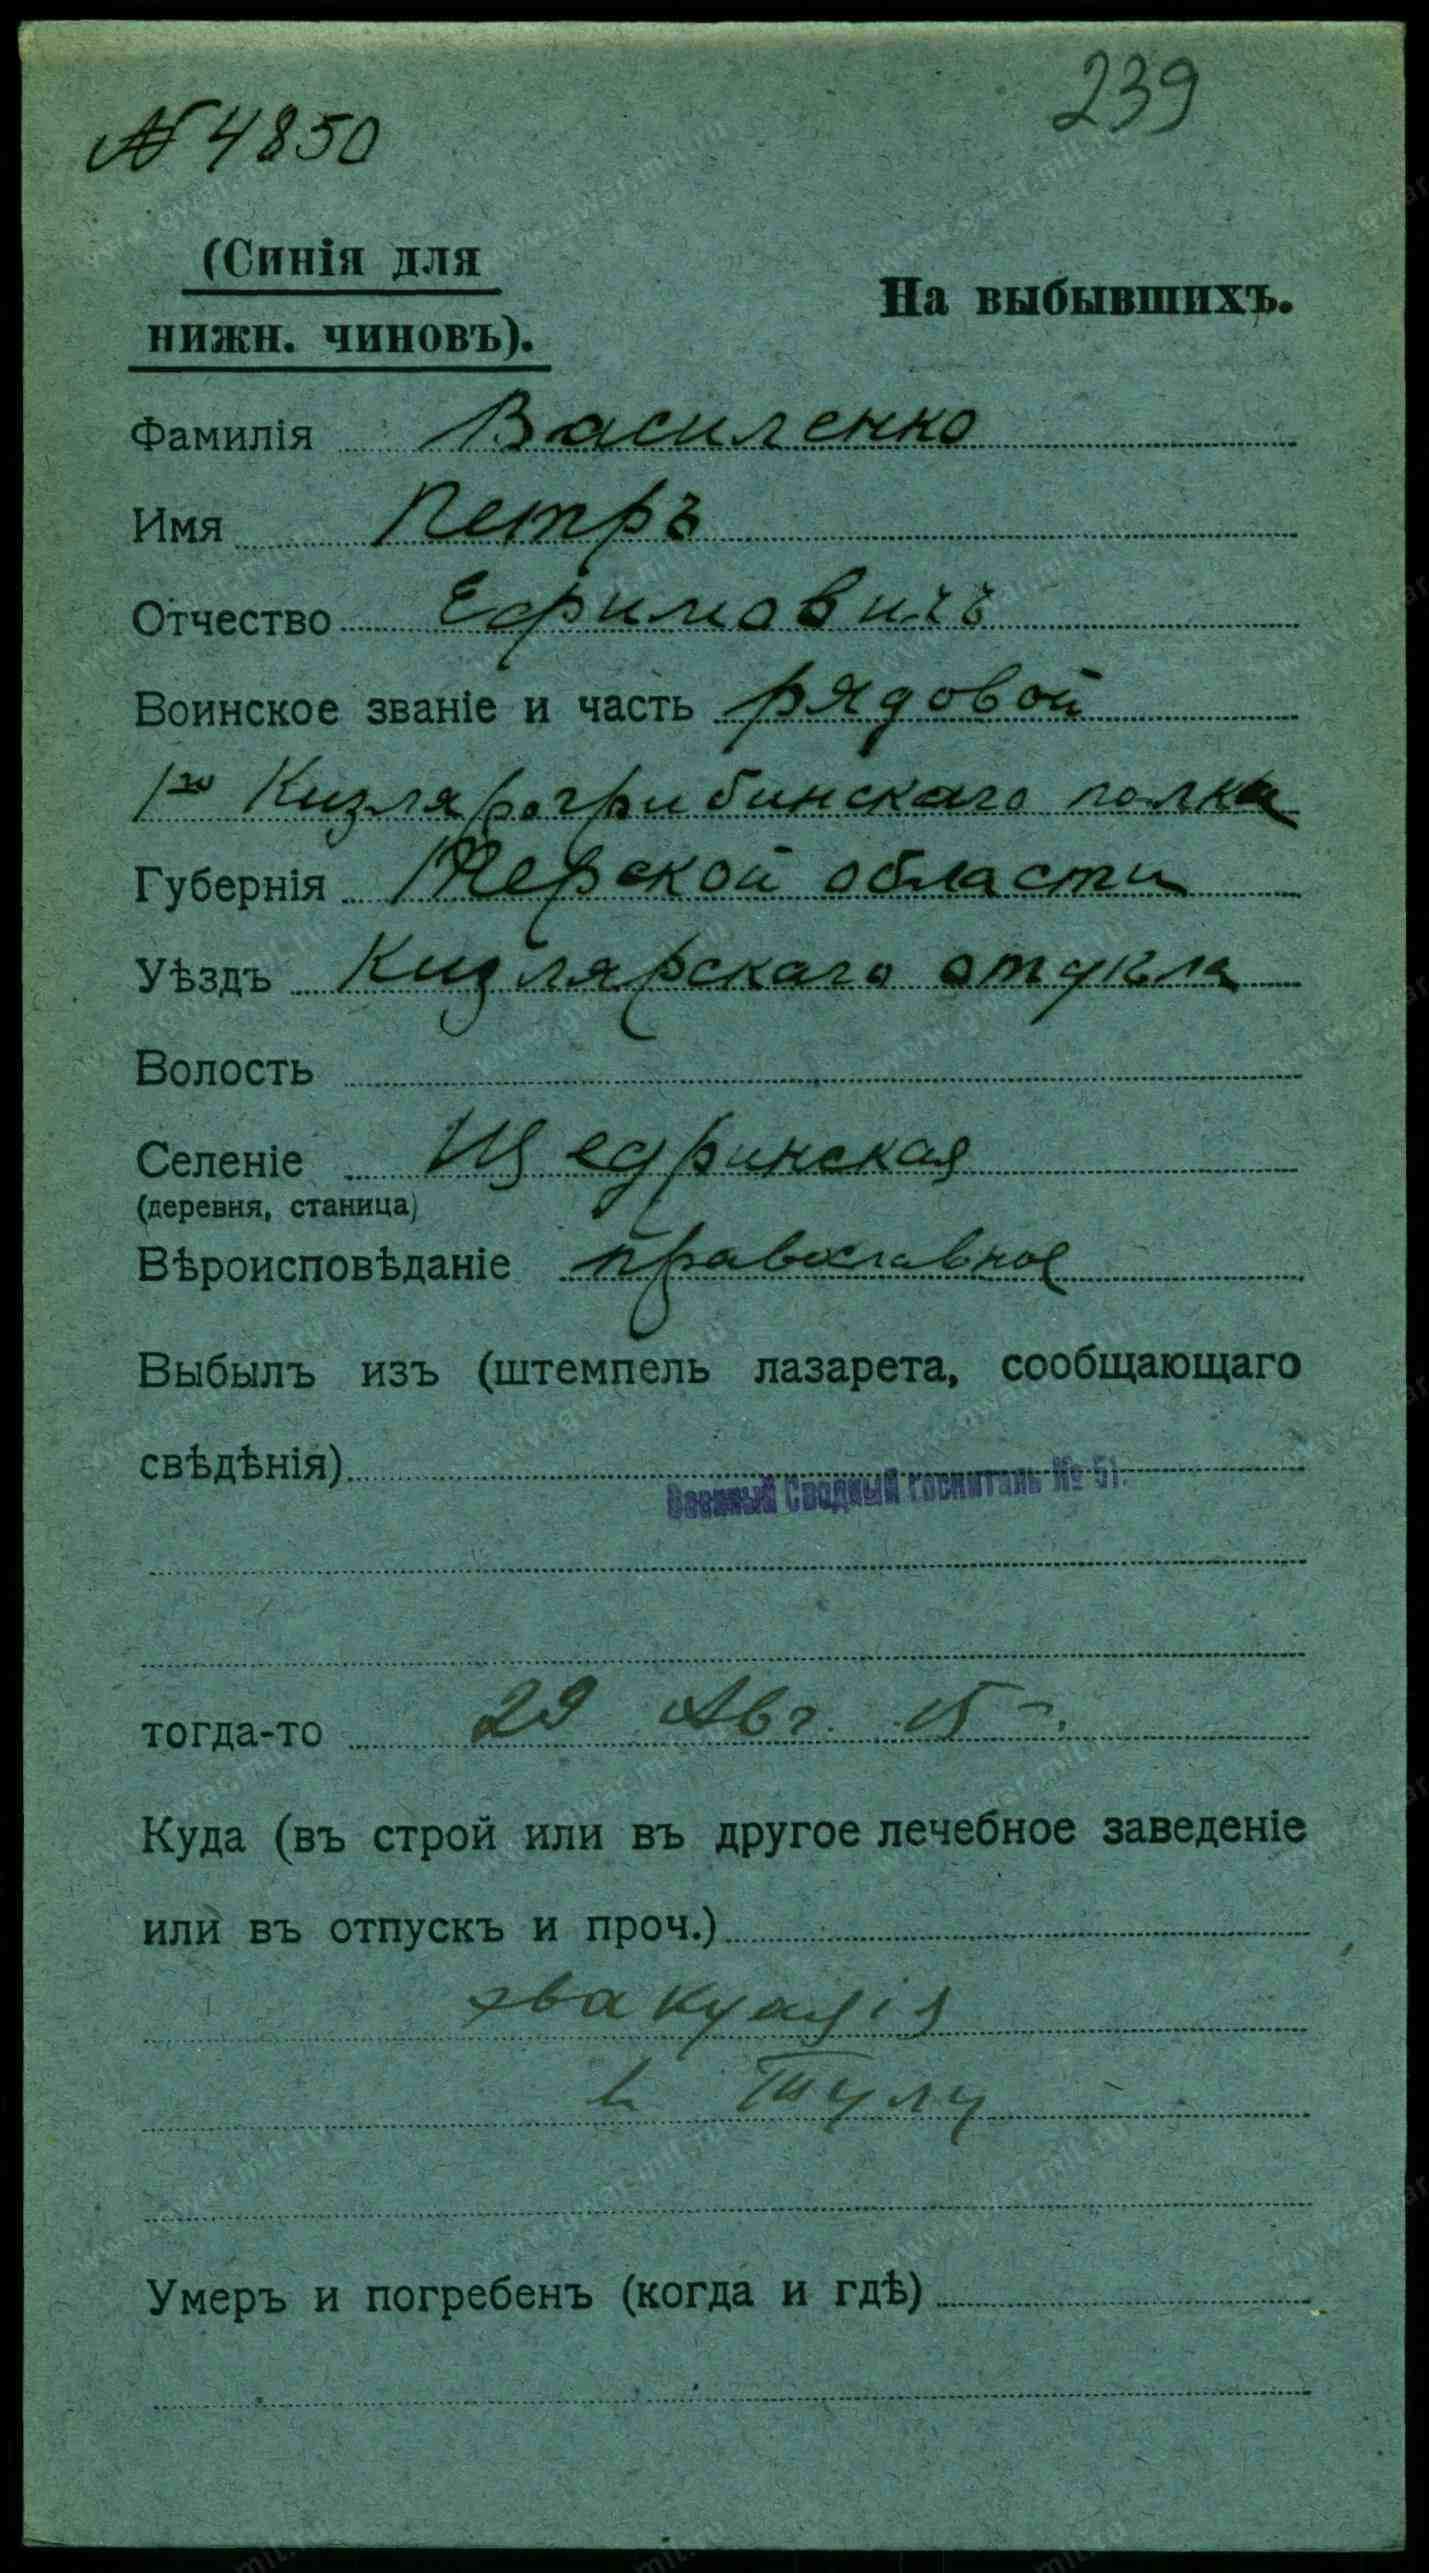 239
№ 4850
(Синія для
нижн. чиновъ).
На выбывшихъ.
Фамилія Василенко
Имя Петръ
Отчество Ефимовичъ
Воинское званіе и часть рядовой
1го Кизлярогрибинскаго полка
Губернія Терской области
Уѣздъ Кизлярскаго отдѣла
Волость
Селеніе Щедринская
(деревня, станица)
Вѣроисповѣданіе православное
Выбылъ изъ (штемпель лазарета, сообщающаго
свѣдѣнія)
Военный Сводный госпиталь № 51.
тогда-то 29 Авг. 15 г.
Куда (въ строй или въ другое лечебное заведеніе
или въ отпускъ и проч.)
эвакуація
в Тулу
Умеръ и погребенъ (когда и гдѣ)
www.gwar.mil.ru